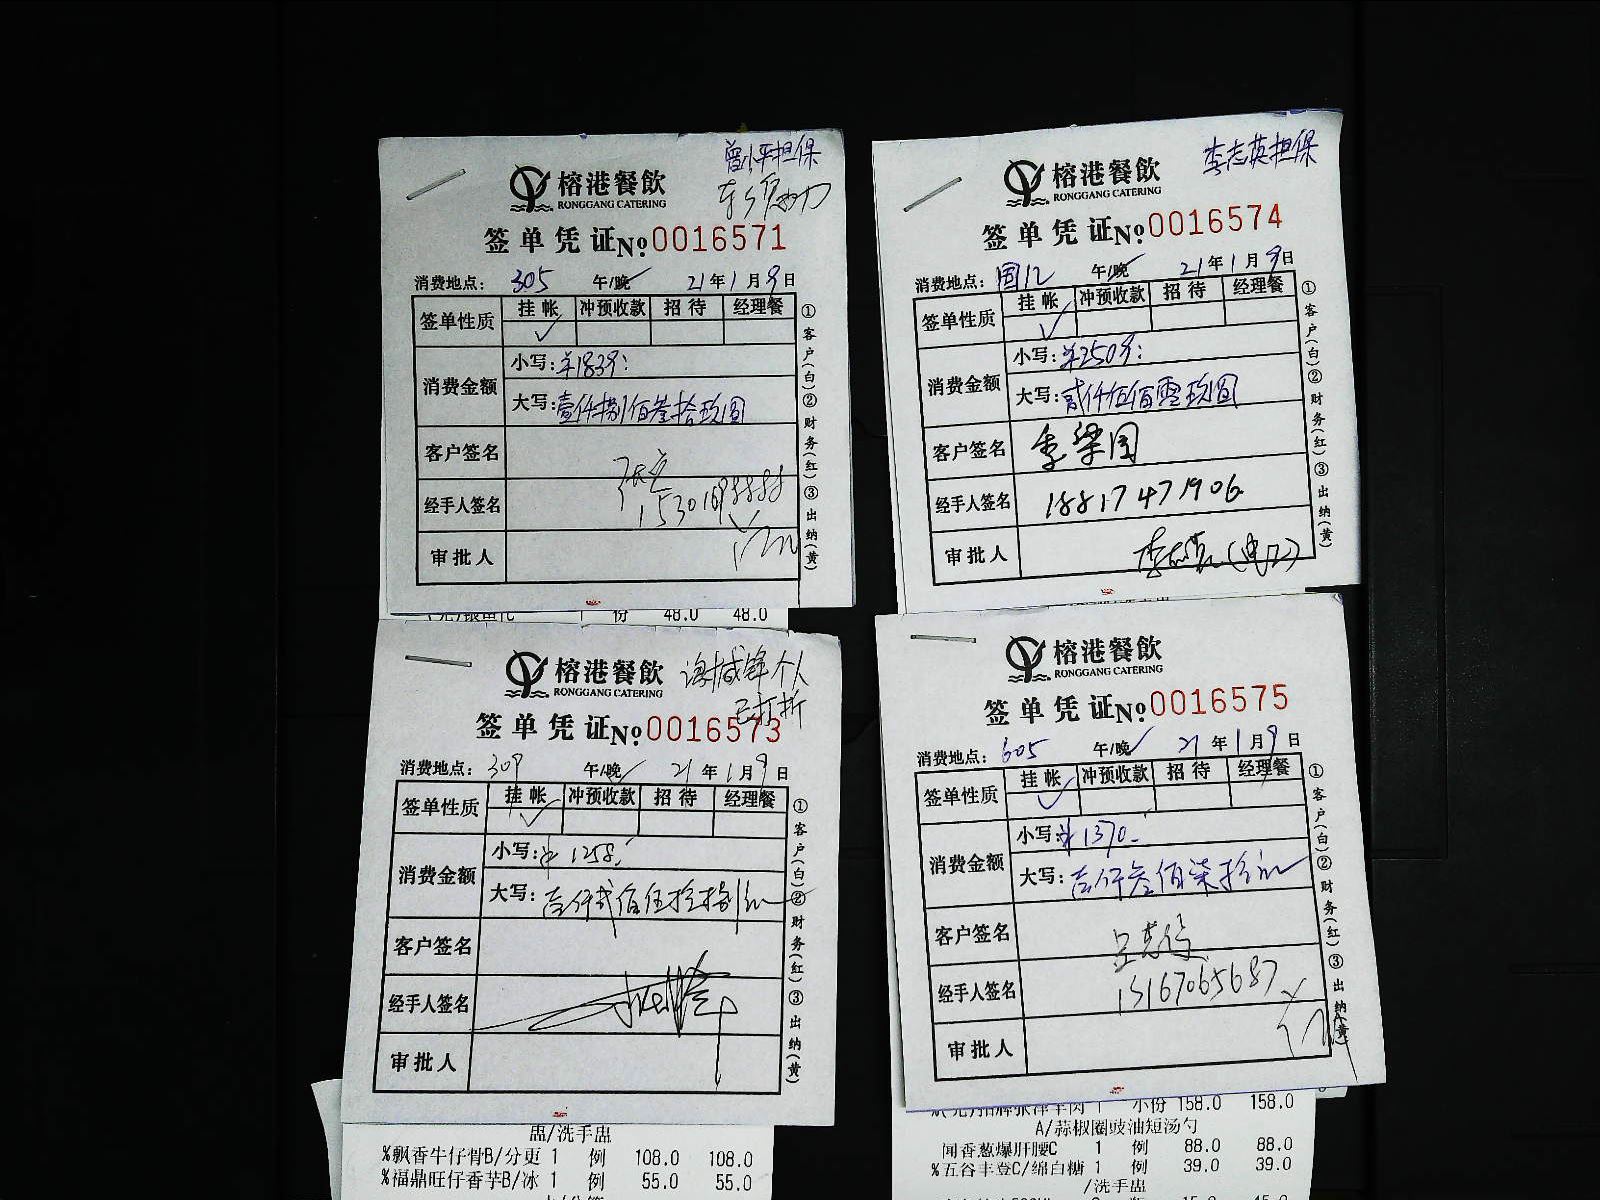 曾小平担保
榕港餐飲
RONGGANG CATERING
签单凭证No.0016571
消费地点：305 午/晚 21年1月9日
签单性质 挂帐 冲预收款 招待 经理餐
消费金额 小写：¥1839：
大写：壹仟捌佰叁拾玖圆
客户签名
经手人签名
审批人
①客户(白)②财务(红)③出纳(黄)
48.0 48.0
李志英担保
榕港餐飲
RONGGANG CATERING
签单凭证No.0016574
消费地点： 午/晚 21年1月9日
签单性质 挂帐 冲预收款 招待 经理餐
消费金额 小写：¥2509：
大写：贰仟伍佰零玖圆
客户签名 李梁国
经手人签名 18817471906
审批人
①客户(白)②财务(红)③出纳(黄)
个人
已打折
榕港餐飲
RONGGANG CATERING
签单凭证No.0016573
消费地点：309 午/晚 21年1月9日
签单性质 挂帐 冲预收款 招待 经理餐
消费金额 小写：¥1258.
大写：壹仟贰佰伍拾捌元
客户签名
经手人签名
审批人
①客户(白)②财务(红)③出纳(黄)
盅/洗手盅
%飘香牛仔骨B/分更 1 例 108.0 108.0
%福鼎旺仔香芋B/冰 1 例 55.0 55.0
榕港餐飲
RONGGANG CATERING
签单凭证No.0016575
消费地点：605 午/晚 21年1月9日
签单性质 挂帐 冲预收款 招待 经理餐
消费金额 小写：¥1370.
大写：壹仟叁佰柒拾元
客户签名
经手人签名 15167065687
审批人
①客户(白)②财务(红)③出纳(黄)
小份 158.0 158.0
A/蒜椒圈豉油短汤勺
闻香葱爆肝腰C 1 例 88.0 88.0
%五谷丰登C/绵白糖 1 例 39.0 39.0
/洗手盅